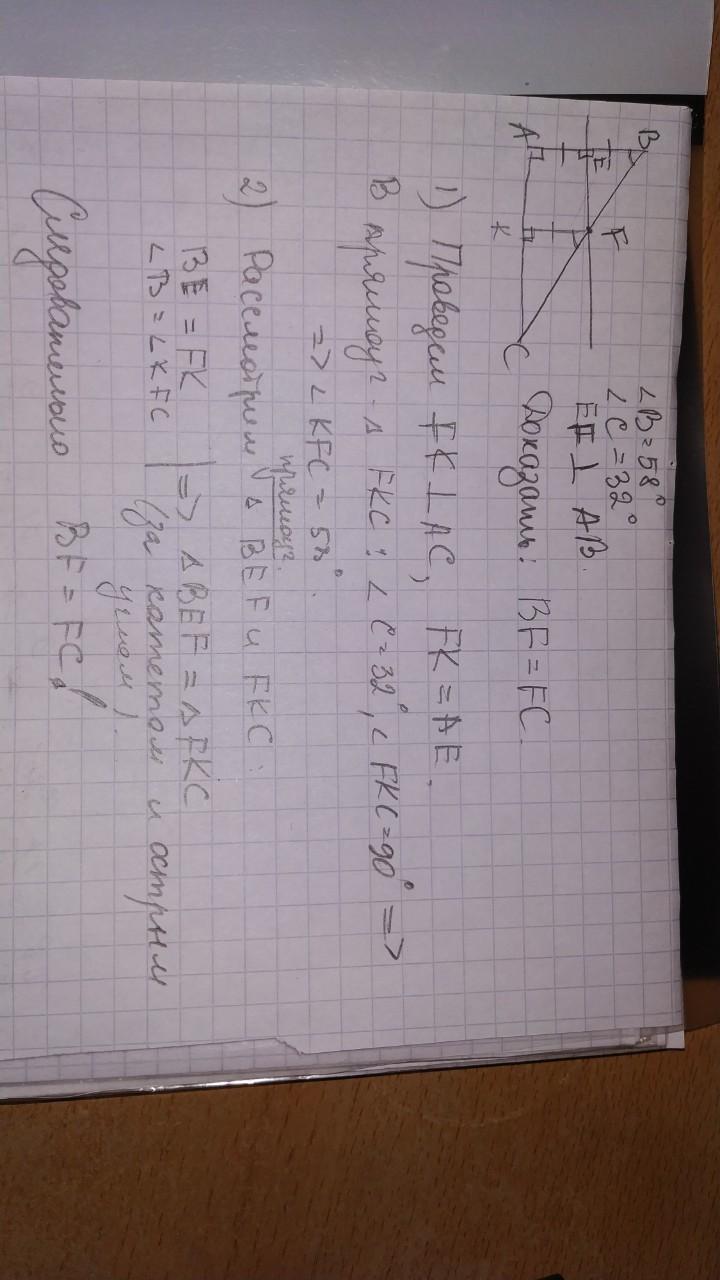 B
A
E
F
K
C
∠B = 58°
∠C = 32°
EF ⊥ AB.
Доказать: BF = FC.
1) Проведем FK ⊥ AC, FK = AE.
В прямоуг. Δ FKC: ∠C = 32°, ∠FKC = 90° =>
=> ∠KFC = 58°.
прямоуг.
2) Рассмотрим Δ BEF и FKC:
BE = FK
∠B = ∠KFC | => Δ BEF = Δ FKC
(за катетом и острым
углом).
Следовательно BF = FC